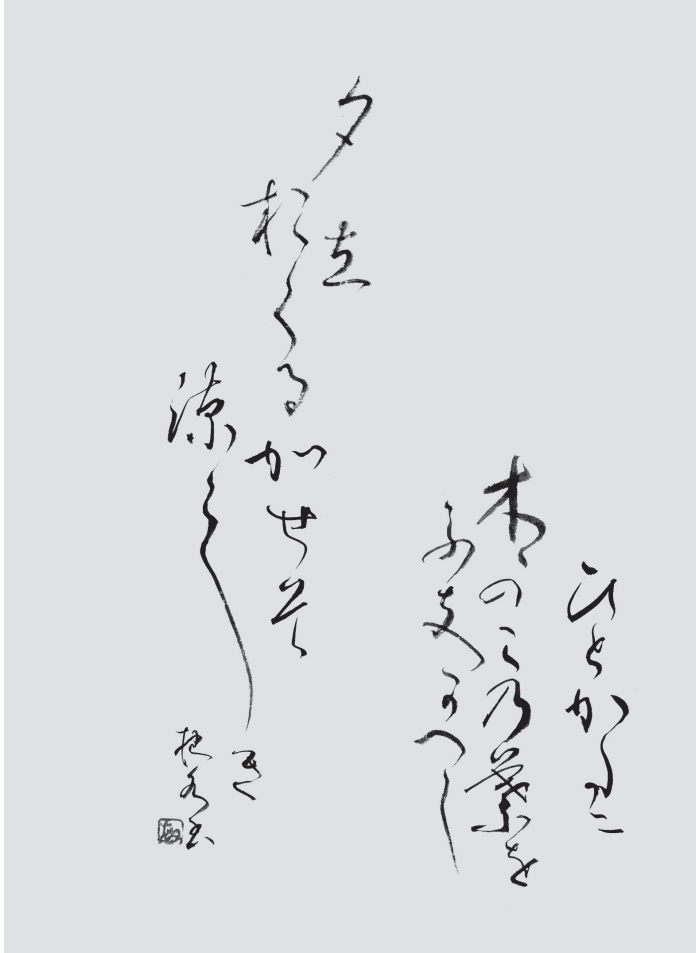 ひとかたに
木ゝのこ乃葉を
ふ支可へし
夕立
おくるかせそ
涼しき